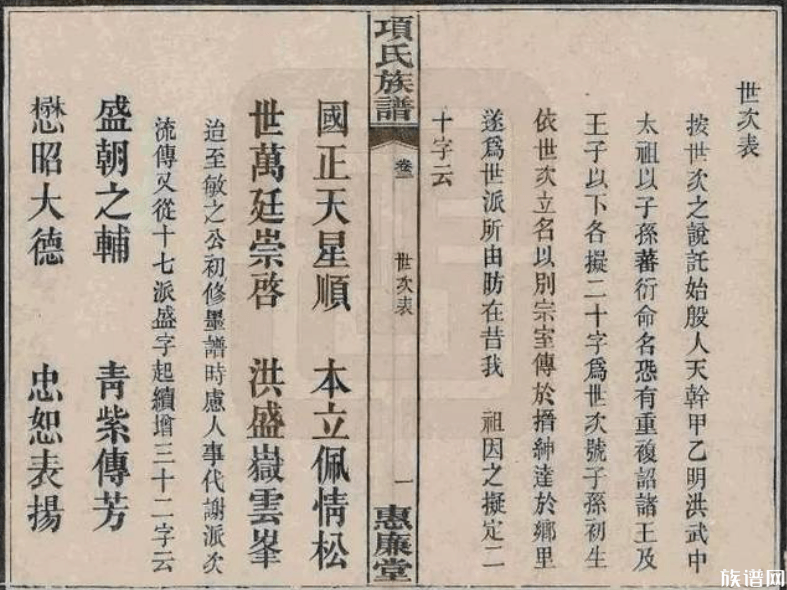 世次表
按世次之說託始殷人天幹甲乙明洪武中
太祖以子孫蕃衍命名恐有重複詔諸王及
王子以下各擬二十字爲世次號子孫初生
依世次立名以別宗室傳於搢紳達於鄉里
遂爲世派所由昉在昔我 祖因之擬定二
十字云
項氏族譜 卷 世次表 一 惠廉堂
國正天星順 本立佩情松
世萬廷崇啓 洪盛嶽雲峯
迨至敏之公初修墨譜時慮人事代謝派次
流傳又從十七派盛字起續增三十二字云
盛朝之輔 青紫傳芳
懋昭大德 忠恕表揚
族谱网